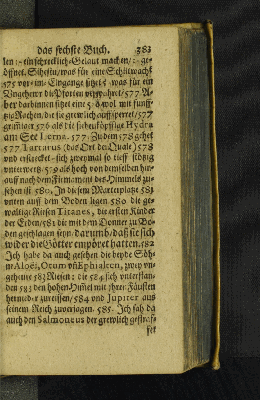 das sechste Buch. 383
len: ein schrecklich-Gelaut machen/ ge-
öffnet. Sihestu/was für eine Schiltwacht
575 vor-im-Eingange sitzt? was für ein
Ungehewr die Pforten verwahret/577 A-
ber darbinnen sitzt eine 576 wol mit funff-
tzig Rachen/die sie grewlich auffsperret/577
grimmiger 576 als die siebenköpffige Hydra
am See Lerna. 577. Zu dem 578 gehet
577 Tartarus (das Ort der Quale) 578
und erstrecket-sich zweymal so tieff stötzig
unterwerts/579 als hoch von demselben hin-
auff nach dem Firmament des Himmels zu-
sehen ist 580. In diesem Marterplatz 581
unten auff dem Boden ligen 580 die ge-
waltige Riesen Titanes, die ersten Kinder
der Erden/581 die mit dem Donner zu Bo-
den geschlagen seyn/ darumb/daß sie sich
wider die Götter empöret hatten. 582
Ich habe da auch gesehen die beyde Söh-
ne Aloëi, Otum uñ Ephialten, zwey un-
geheure 582 Riesen: die 584 sich unterstan-
den 583 den hohen Him̃el mit ihren Fäusten
hernieder zureissen/584 und Jupiter aus
seinem Reich zuverjagen. 585. Ich sah da
auch den Salmoneus der grewlich gestraf-
fet